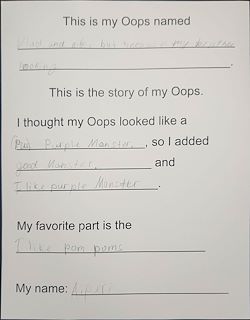 This is my Oops named
and but because my brother
.
This is the story of my Oops.
I thought my Oops looked like a
Purple Monster, so I added
good Monster, and
I like purple Monster.
My favorite part is the
I like pom poms
My name: